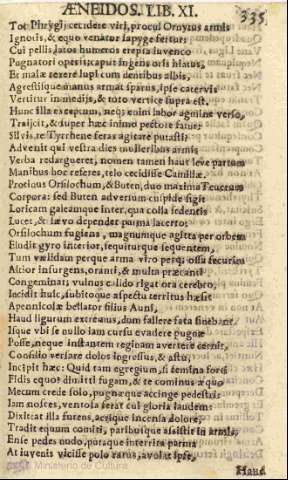 ÆNEIDOS. LIB. XI.
335
Tot Phrygij cecidere viri, procul Ornytus armis
Ignotis, & equo venator Iapyge fertur:
Cui pellis latos humeros erepta iuvenco
Pugnatori operit: caput ingens oris hiatus,
Et malæ texere lupi cum dentibus albis,
Agrestisque manus armat sparus, ipse catervis
Vertitur in medijs, & toto vertice supra est.
Hunc illa exceptum, neq; enim labor agmine verso,
Traijcit, & super hæc inimo pectore fatur:
Silvis te Tyrrhene feras agitare putasti?
Advenit qui vestra dies muliebribus armis
Verba redargueret, nomen tamen haut leve patrum
Manibus hoc referes, telo cecidisse Camillæ.
Protinus Orsilochum, & Buten, duo maxima Teucrum
Corpora: sed Buten adversum cuspide figit
Loricam galeamque inter, qua colla sedentis
Lucet, & lævo dependet parma lacerto:
Orsilochum fugiens, magnumque agitta per orbem
Eludit gyro interior, sequiturque sequentem,
Tum validam perque arma viro perq; ossa securim
Altior insurgens, oranti, & multa præcanti
Congeminat; vulnus calido rigat ora cerebro,
Incidit huic, subitoque aspectu territus hæsit
Apenninicolæ bellator filius Auni,
Haud ligurum extremus, dum fallere fata sinebant.
Isque vbi se nullo iam cursu evadere pugnæ
Posse, neque instantem reginam avertere cernit,
Consilio versare dolos ingressus, & astu,
Incipit hæc: Quid tam egregium, si femina forti
Fidis equo? dimitti fugam, & te cominus æquo
Mecum crede solo, pugnæque accinge pedestri:
Iam nosces, ventosa ferat cui gloria laudem:
Dixit: at illa furens, acrique incensa dolore,
Tradit equum comiti, paribusque assistit in armis,
Ense pedes nudo, puraque interrita parma
At iuvenis vicisse dolo ratus, avolat ipse,
Haud
Ministerio de Cultura